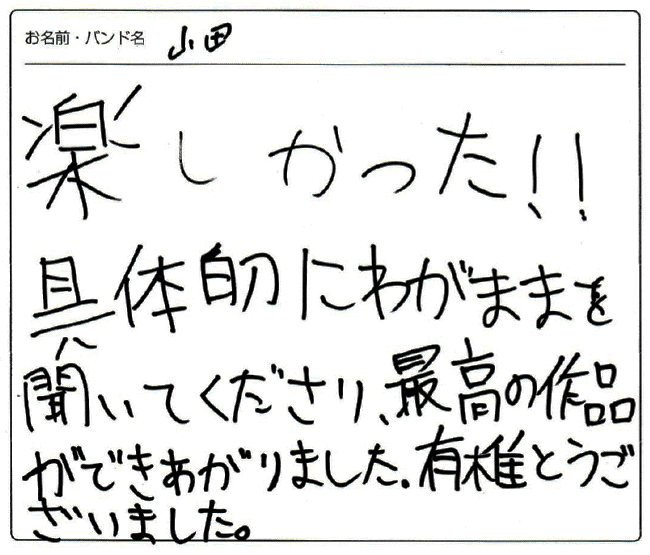 お名前・バンド名 山田
楽しかった!!
具体的にわがままを
聞いてくださり、最高の作品
ができあがりました。有難とうご
ざいました。